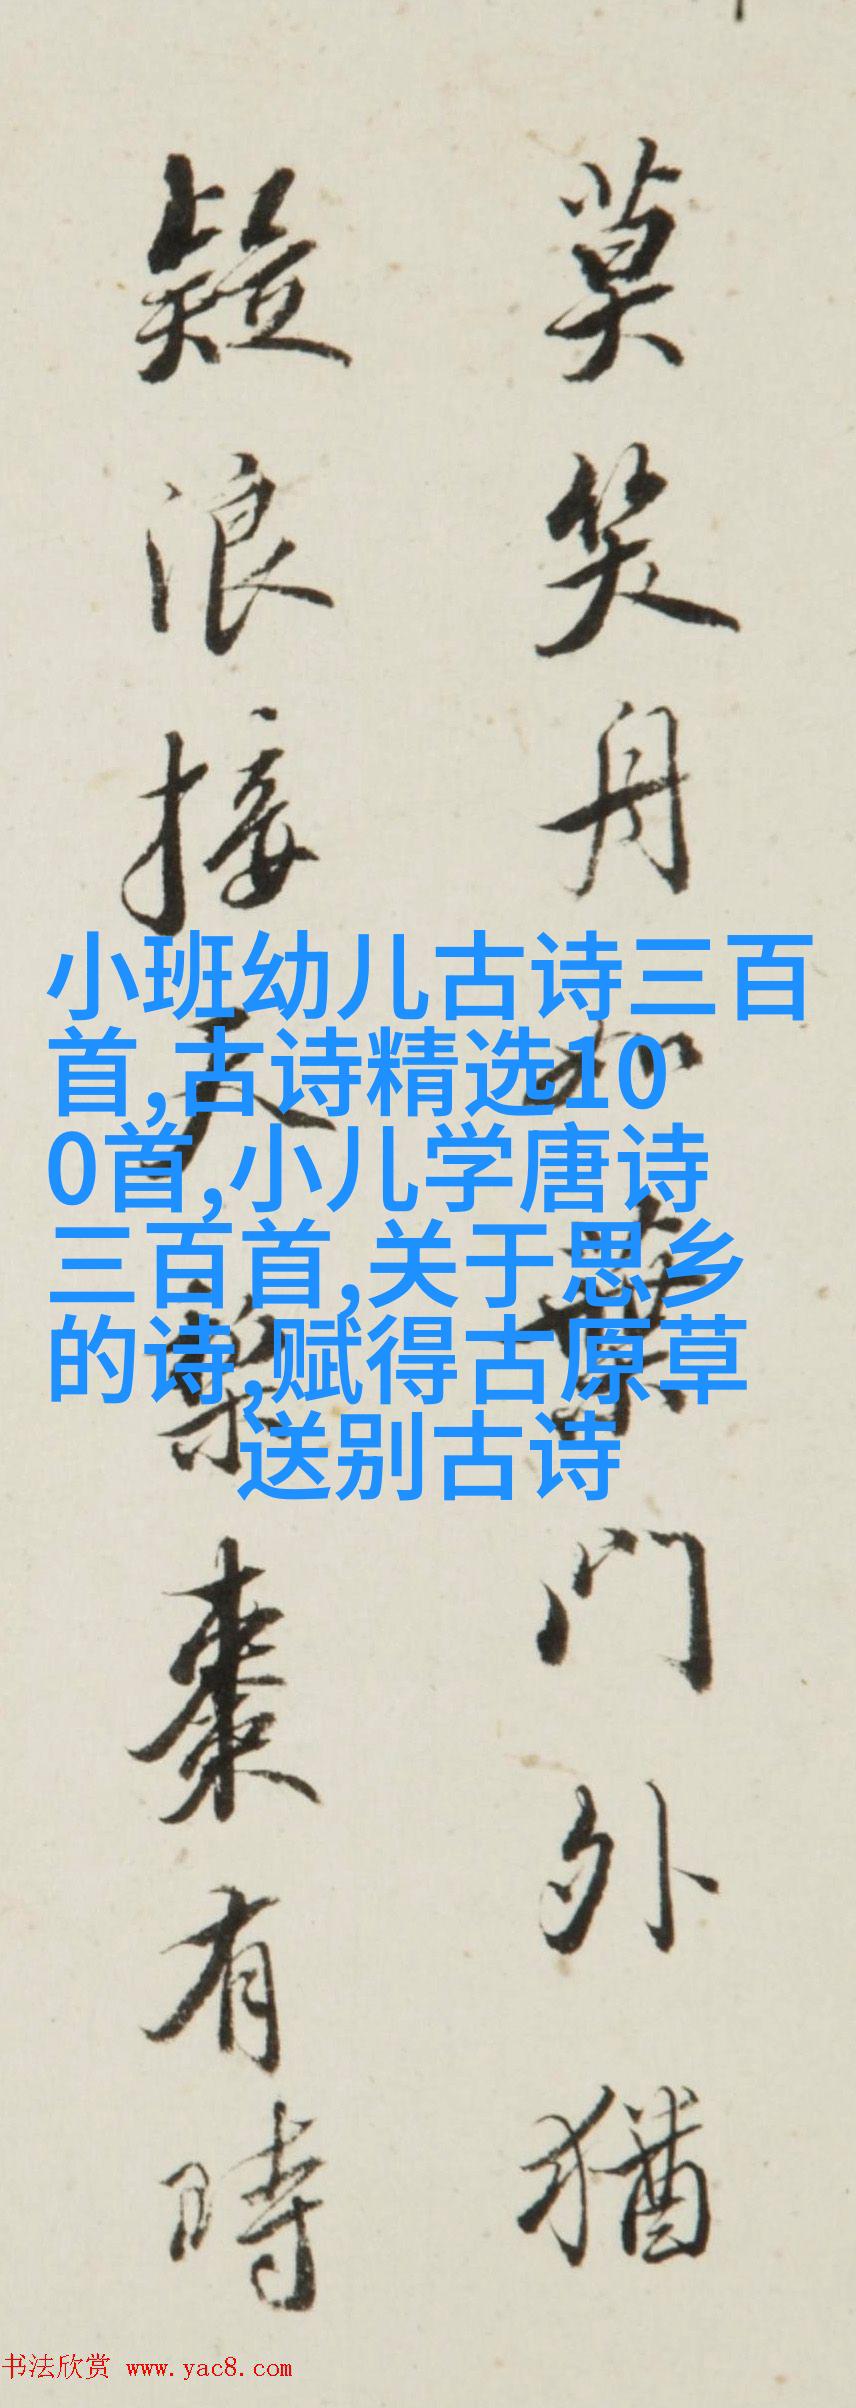 莫笑舟如葉門外猶
疑浪接天梨棗有時
小班幼儿古诗三百
首,古诗精选10
0首,小儿学唐诗
三百首,关于思乡
的诗,赋得古原草
送别古诗
书法欣赏 www.yac8.com